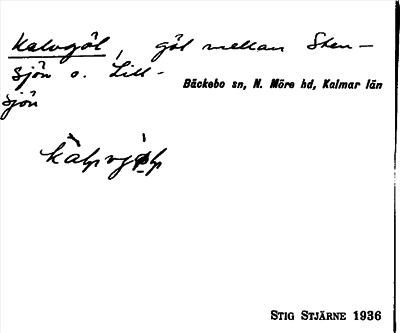 Kalvgöl, göl mellan Sten-
sjön o. Lill-
sjön
Bäckebo sn, N. Möre hd, Kalmar län
STIG STJÄRNE 1936